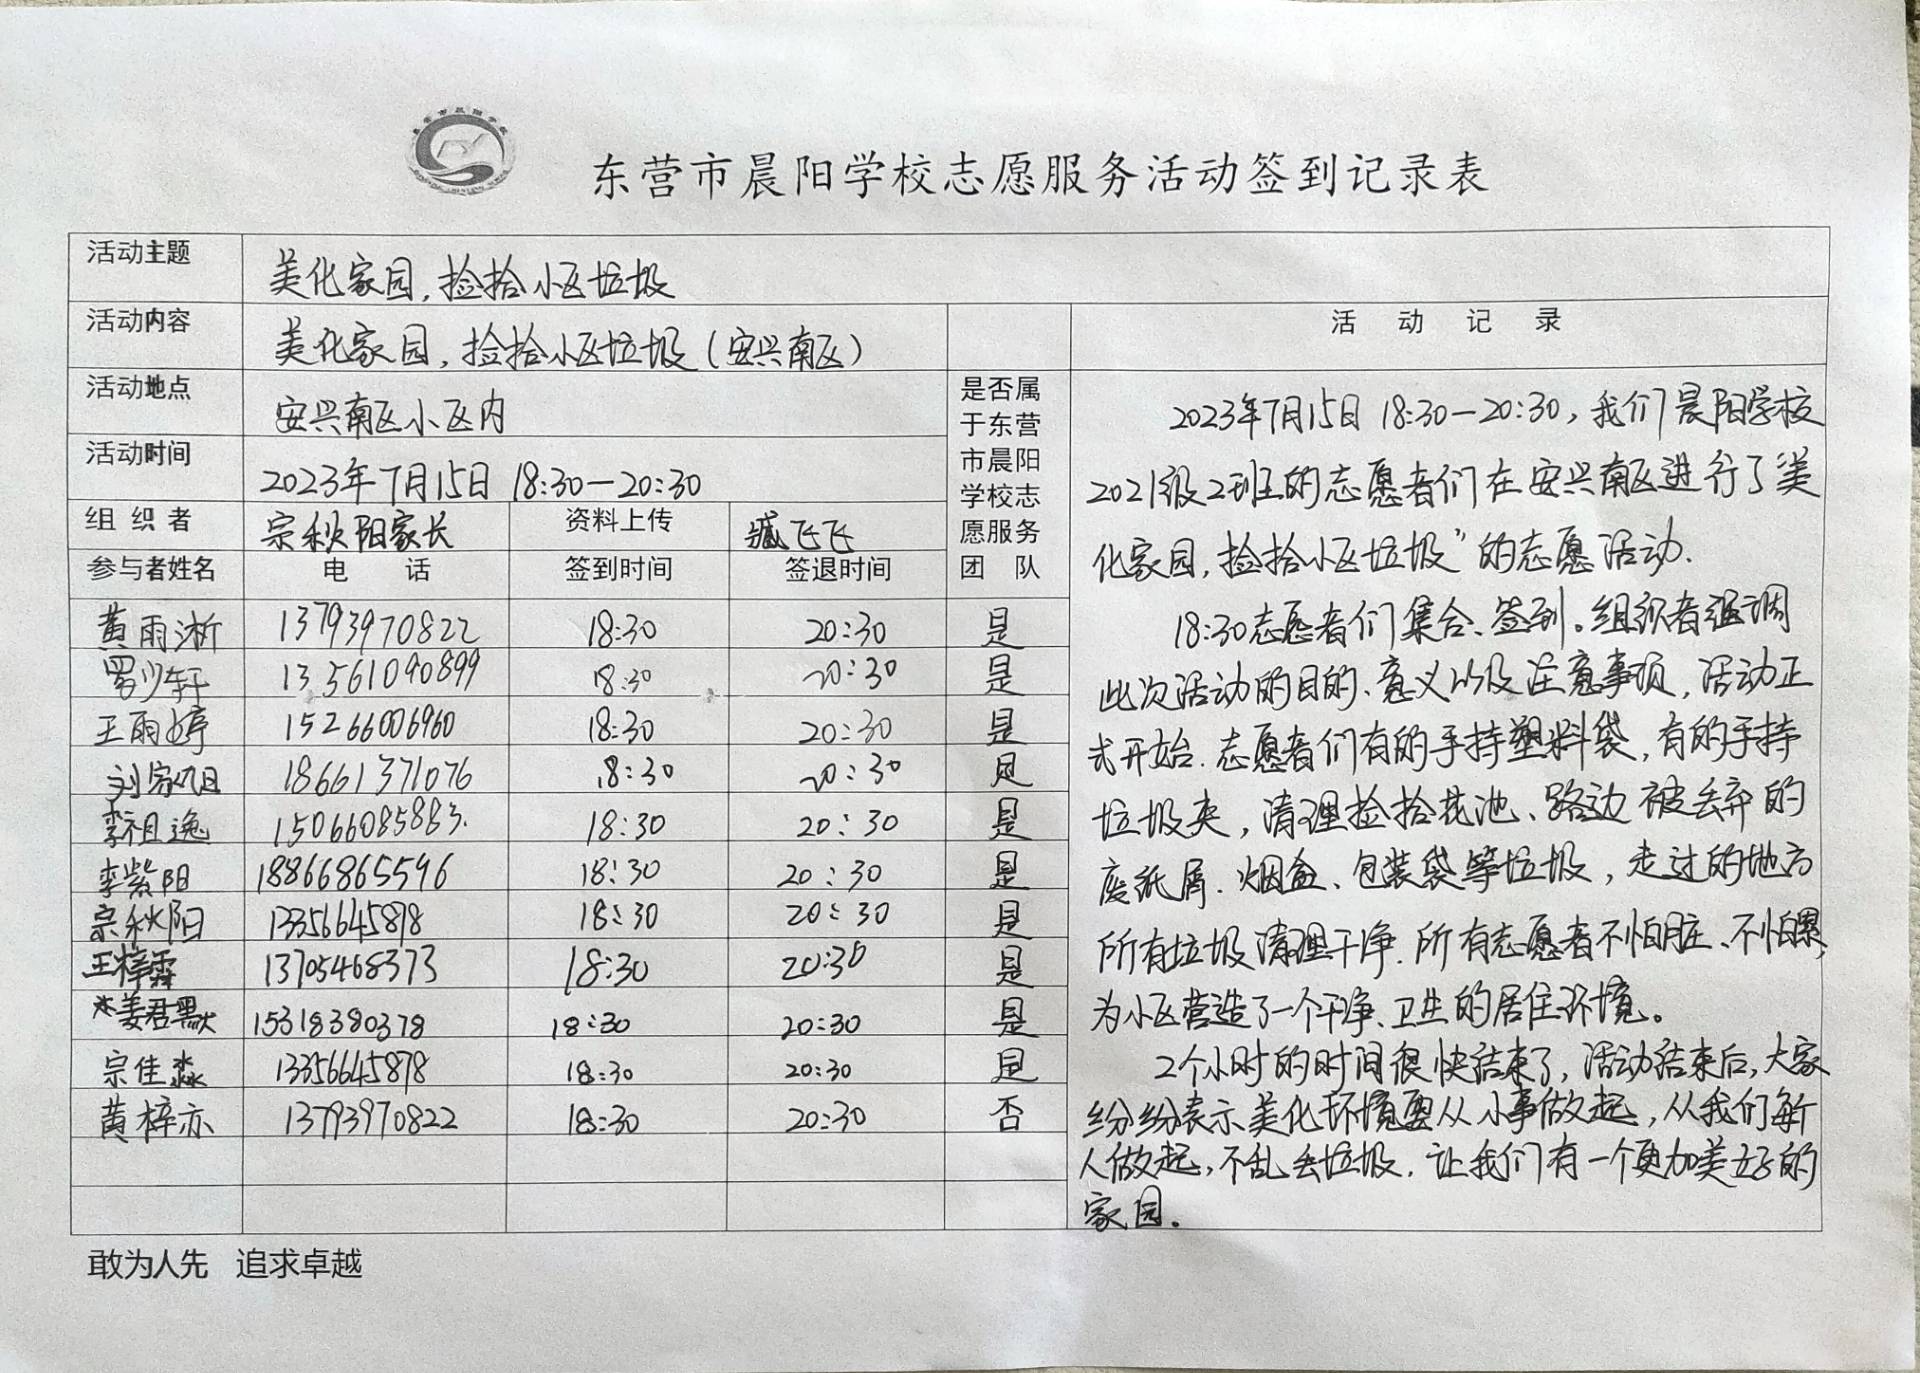 东营市晨阳学校志愿服务活动签到记录表
活动主题 美化家园,捡拾小区垃圾
活动内容 美化家园,捡拾小区垃圾(安兴南区)
活动地点 安兴南区小区内
活动时间 2023年7月15日 18:30—20:30
组织者 宗秋阳家长 资料上传 臧飞飞
参与者姓名 电话 签到时间 签退时间
是否属
于东营
市晨阳
学校志
愿服务
团队
黄雨淅 13793970822 18:30 20:30 是
罗少轩 13561090899 18:30 20:30 是
王雨婷 15266006960 18:30 20:30 是
刘家旭 18661371076 18:30 20:30 是
李祖逸 15066085883. 18:30 20:30 是
李紫阳 18866865596 18:30 20:30 是
宗秋阳 13356645878 18:30 20:30 是
王梓霖 13705468373 18:30 20:30 是
姜君默 15318380378 18:30 20:30 是
宗佳淼 13356645878 18:30 20:30 是
黄梓亦 13793970822 18:30 20:30 否
活动记录
2023年7月15日 18:30—20:30,我们晨阳学校
2021级2班的志愿者们在安兴南区进行了“美
化家园,捡拾小区垃圾”的志愿活动.
18:30志愿者们集合、签到。组织者强调
此次活动的目的、意义以及注意事项,活动正
式开始.志愿者们有的手持塑料袋,有的手持
垃圾夹,清理捡拾花池、路边被丢弃的
废纸屑、烟盒、包装袋等垃圾,走过的地方
所有垃圾清理干净.所有志愿者不怕脏、不怕累,
为小区营造了一个干净、卫生的居住环境。
2个小时的时间很快结束了,活动结束后,大家
纷纷表示美化环境要从小事做起,从我们每个
人做起,不乱丢垃圾,让我们有一个更加美好的
家园.
敢为人先 追求卓越